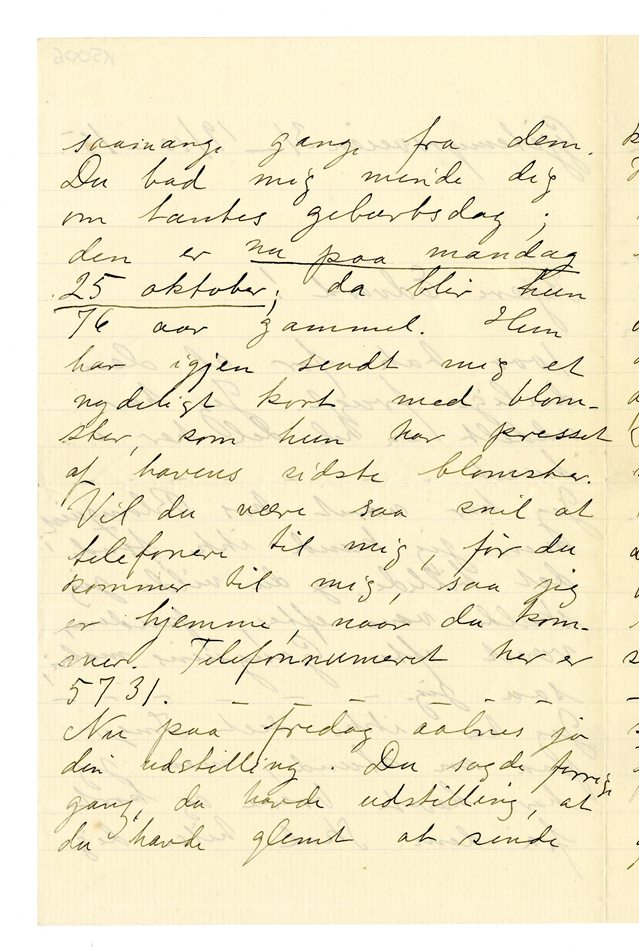 K5006
saamange gange fra dem.
Du bad mig minde dig
om tantes gebærtsdag;
den er nu paa mandag
25 oktober; da blir hun
76 aar gammel. Hun
har igjen sendt mig et
nydeligt kort med blom-
ster, som hun har presset
af havens sidste blomster.
Vil du være saa snil at
telefonere til mig, før du
kommer til mig, saa jeg
er hjemme, naar du kom-
mer. Telefonnumeret her er
5731. – – – – – –
Nu paa fredag aabnes jo
din udstilling. Du sagde forrige
gang, da havde udstilling, at
du havde glemt at sende